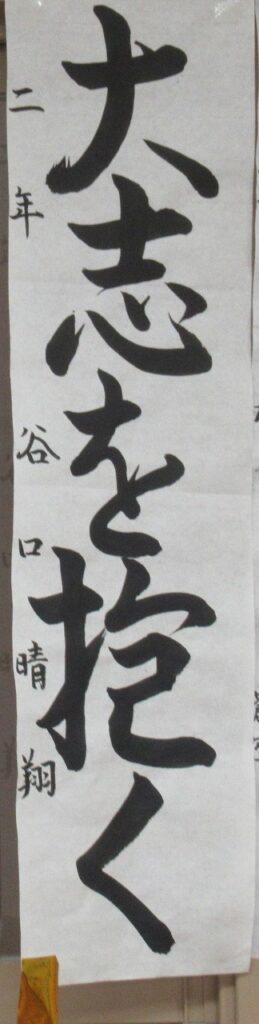 大志を抱く
二年 谷口晴翔